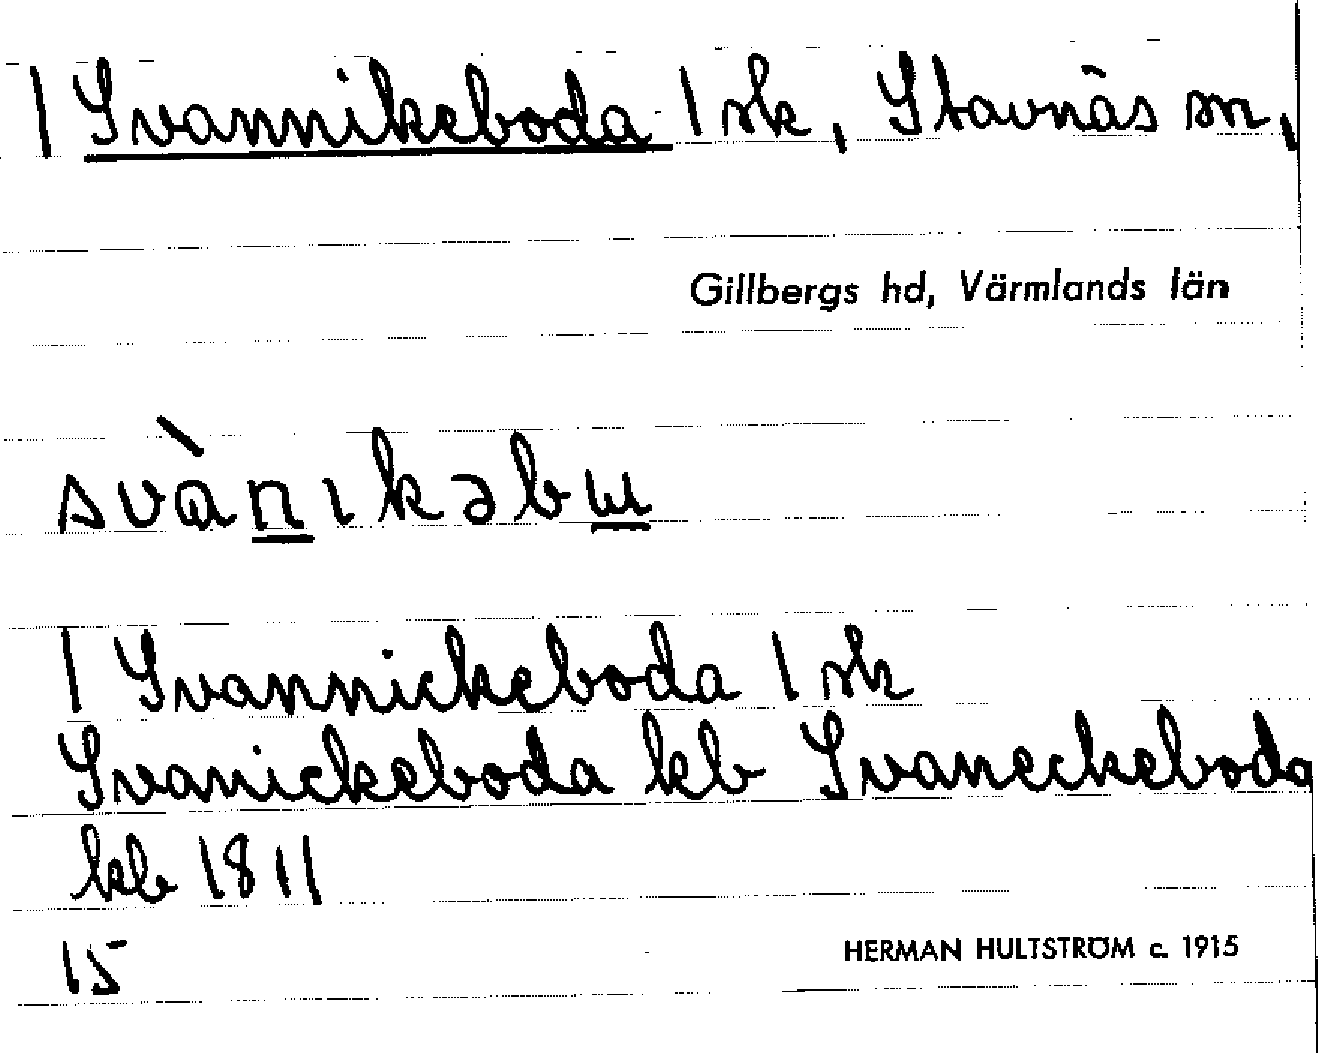 1 Svannikeboda 1 sk, Stavnäs sn,
Gillbergs hd, Värmlands län
svànıkəbɯ
1 Svannickeboda 1 sk
Svanickeboda kb Svaneckeboda
kb 1811
15 HERMAN HULTSTRÖM c. 1915